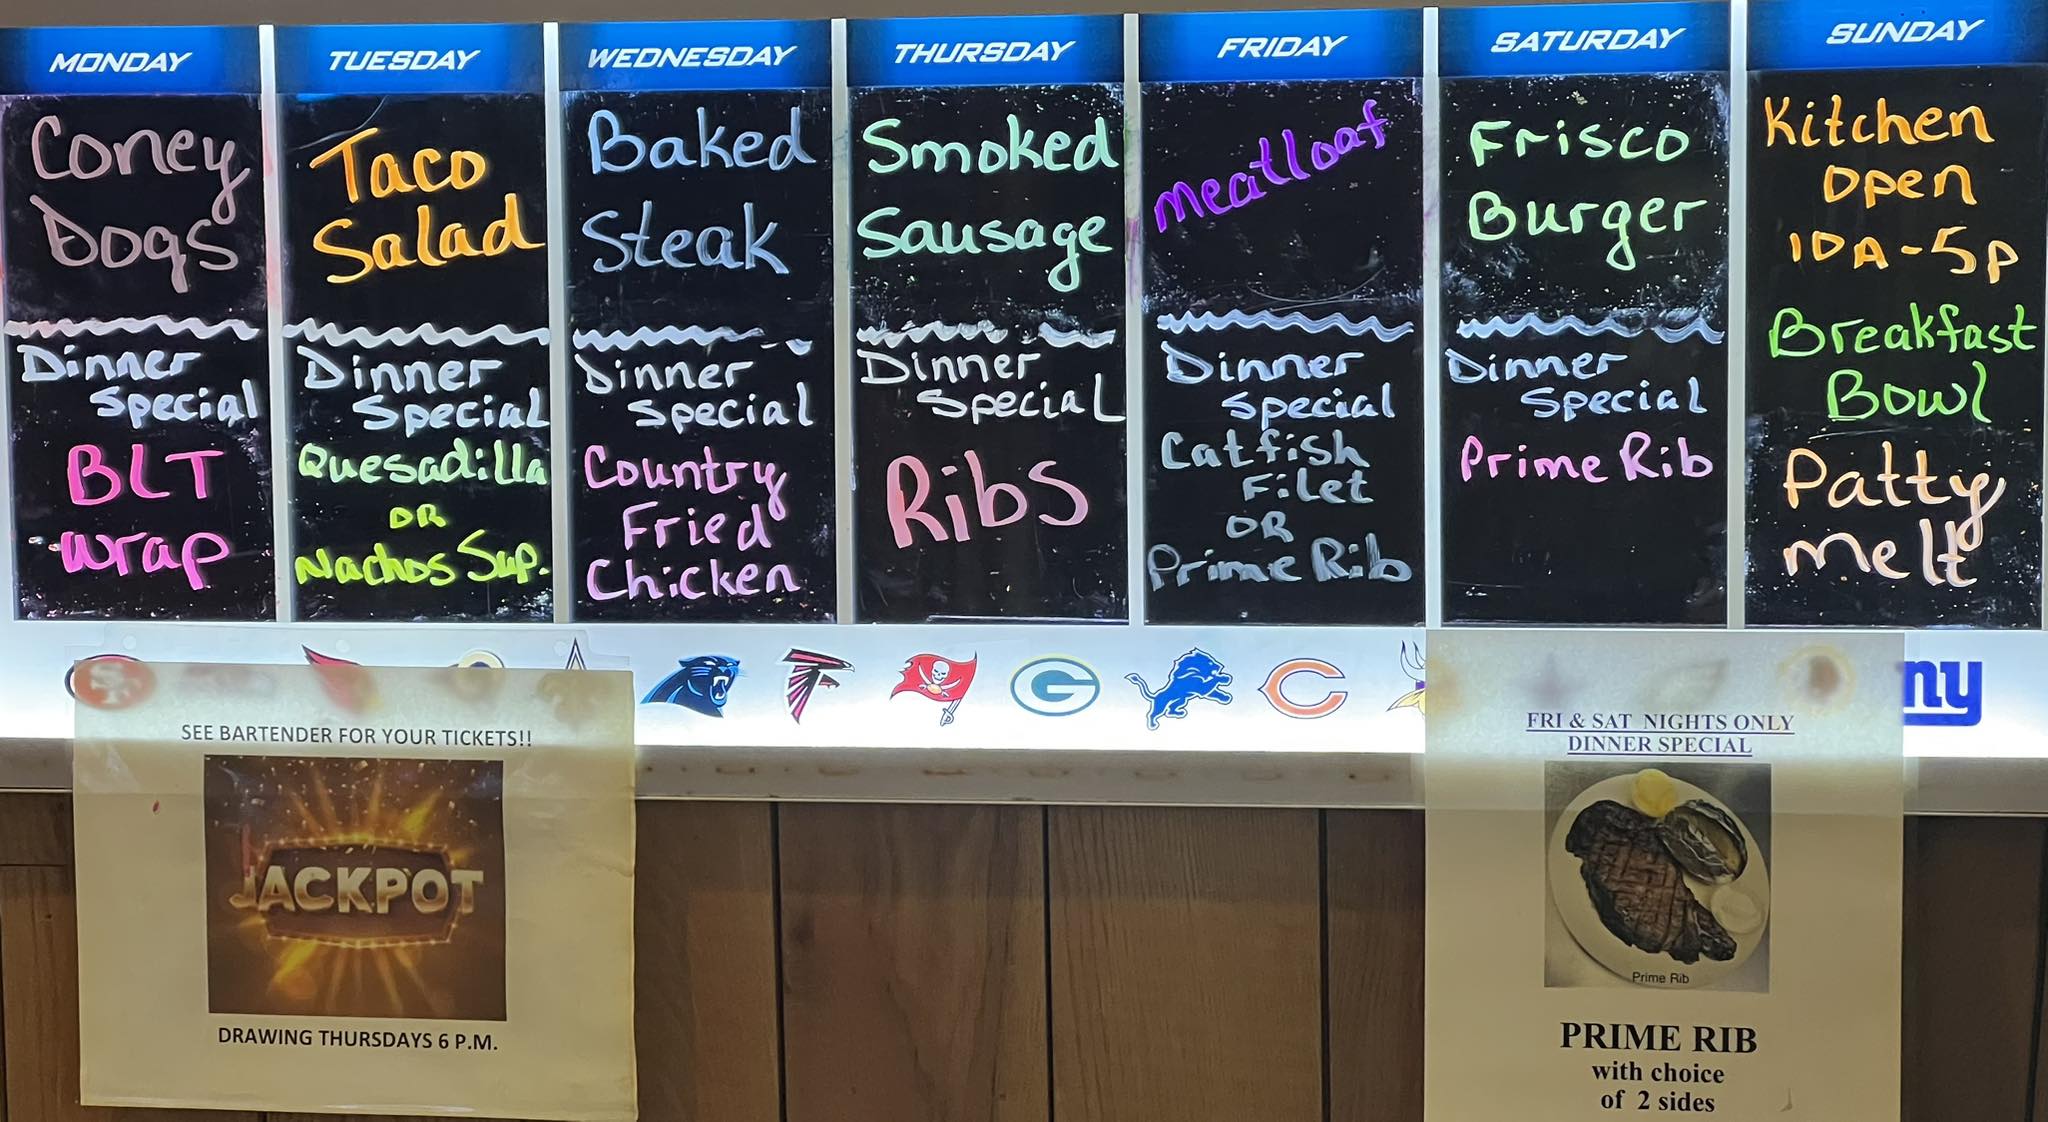 MONDAY
Coney
Dogs
Dinner
Special
BLT
Wrap
TUESDAY
Taco
Salad
Dinner
Special
Quesadilla
OR
Nachos Sup.
WEDNESDAY
Baked
Steak
Dinner
Special
Country
Fried
Chicken
THURSDAY
Smoked
Sausage
Dinner
Special
Ribs
FRIDAY
Meatloaf
Dinner
Special
Catfish
Filet
OR
Prime Rib
SATURDAY
Frisco
Burger
Dinner
Special
Prime Rib
SUNDAY
Kitchen
Open
10A-5P
Breakfast
Bowl
Patty
Melt
SF
G
C
ny
SEE BARTENDER FOR YOUR TICKETS!!
JACKPOT
DRAWING THURSDAYS 6 P.M.
FRI & SAT NIGHTS ONLY
DINNER SPECIAL
Prime Rib
PRIME RIB
with choice
of 2 sides